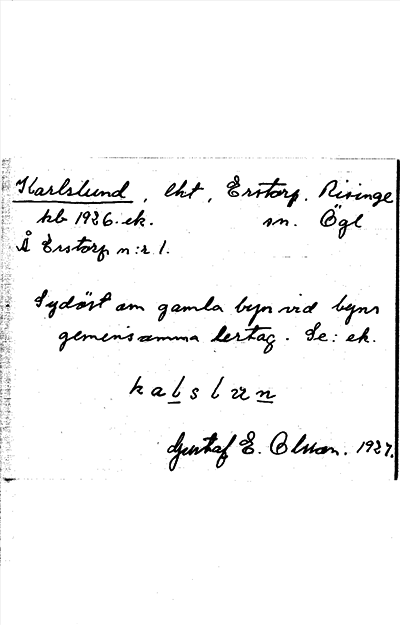 Karlslund, lht, Erstorp. Risinge
kb 1926. ek. sn. Ögl
Å Erstorp n:r 1.
Sydöst om gamla byn vid byns
gemensamma lertag. Se: ek.
kalslun
Gustaf E. Olsson. 1927.